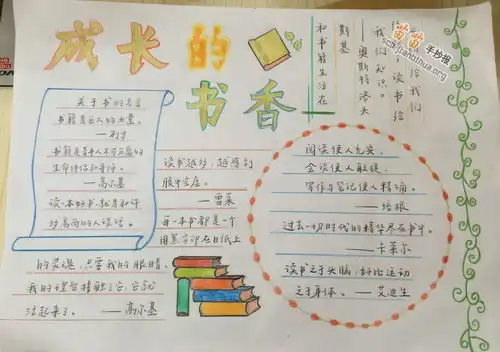 成长的
书香
关于书的名言
书籍是巨人的力量。
——列宁
书籍是青年人不可分离的
生命伴侣和导师。
——高尔基
读一本好书,就是和许
多高尚的人谈话。
读书越多,越感到
腹中空虚。
——雪莱
每一本书都是一个
用黑字印在白纸上
的灵魂,只要我的眼睛、
我的理智接触了它,它就
活起来了。——高尔基
和书籍生活在
斯基
——奥斯特洛夫
我们知识。
读书给
给我们
阅读使人充实,
会谈使人敏捷,
写作与笔记使人精确。
——培根
过去一切时代的精华尽在书中。
——卡莱尔
读书之于头脑,好比运动
之于身体。——艾迪生
笛笛
手抄报